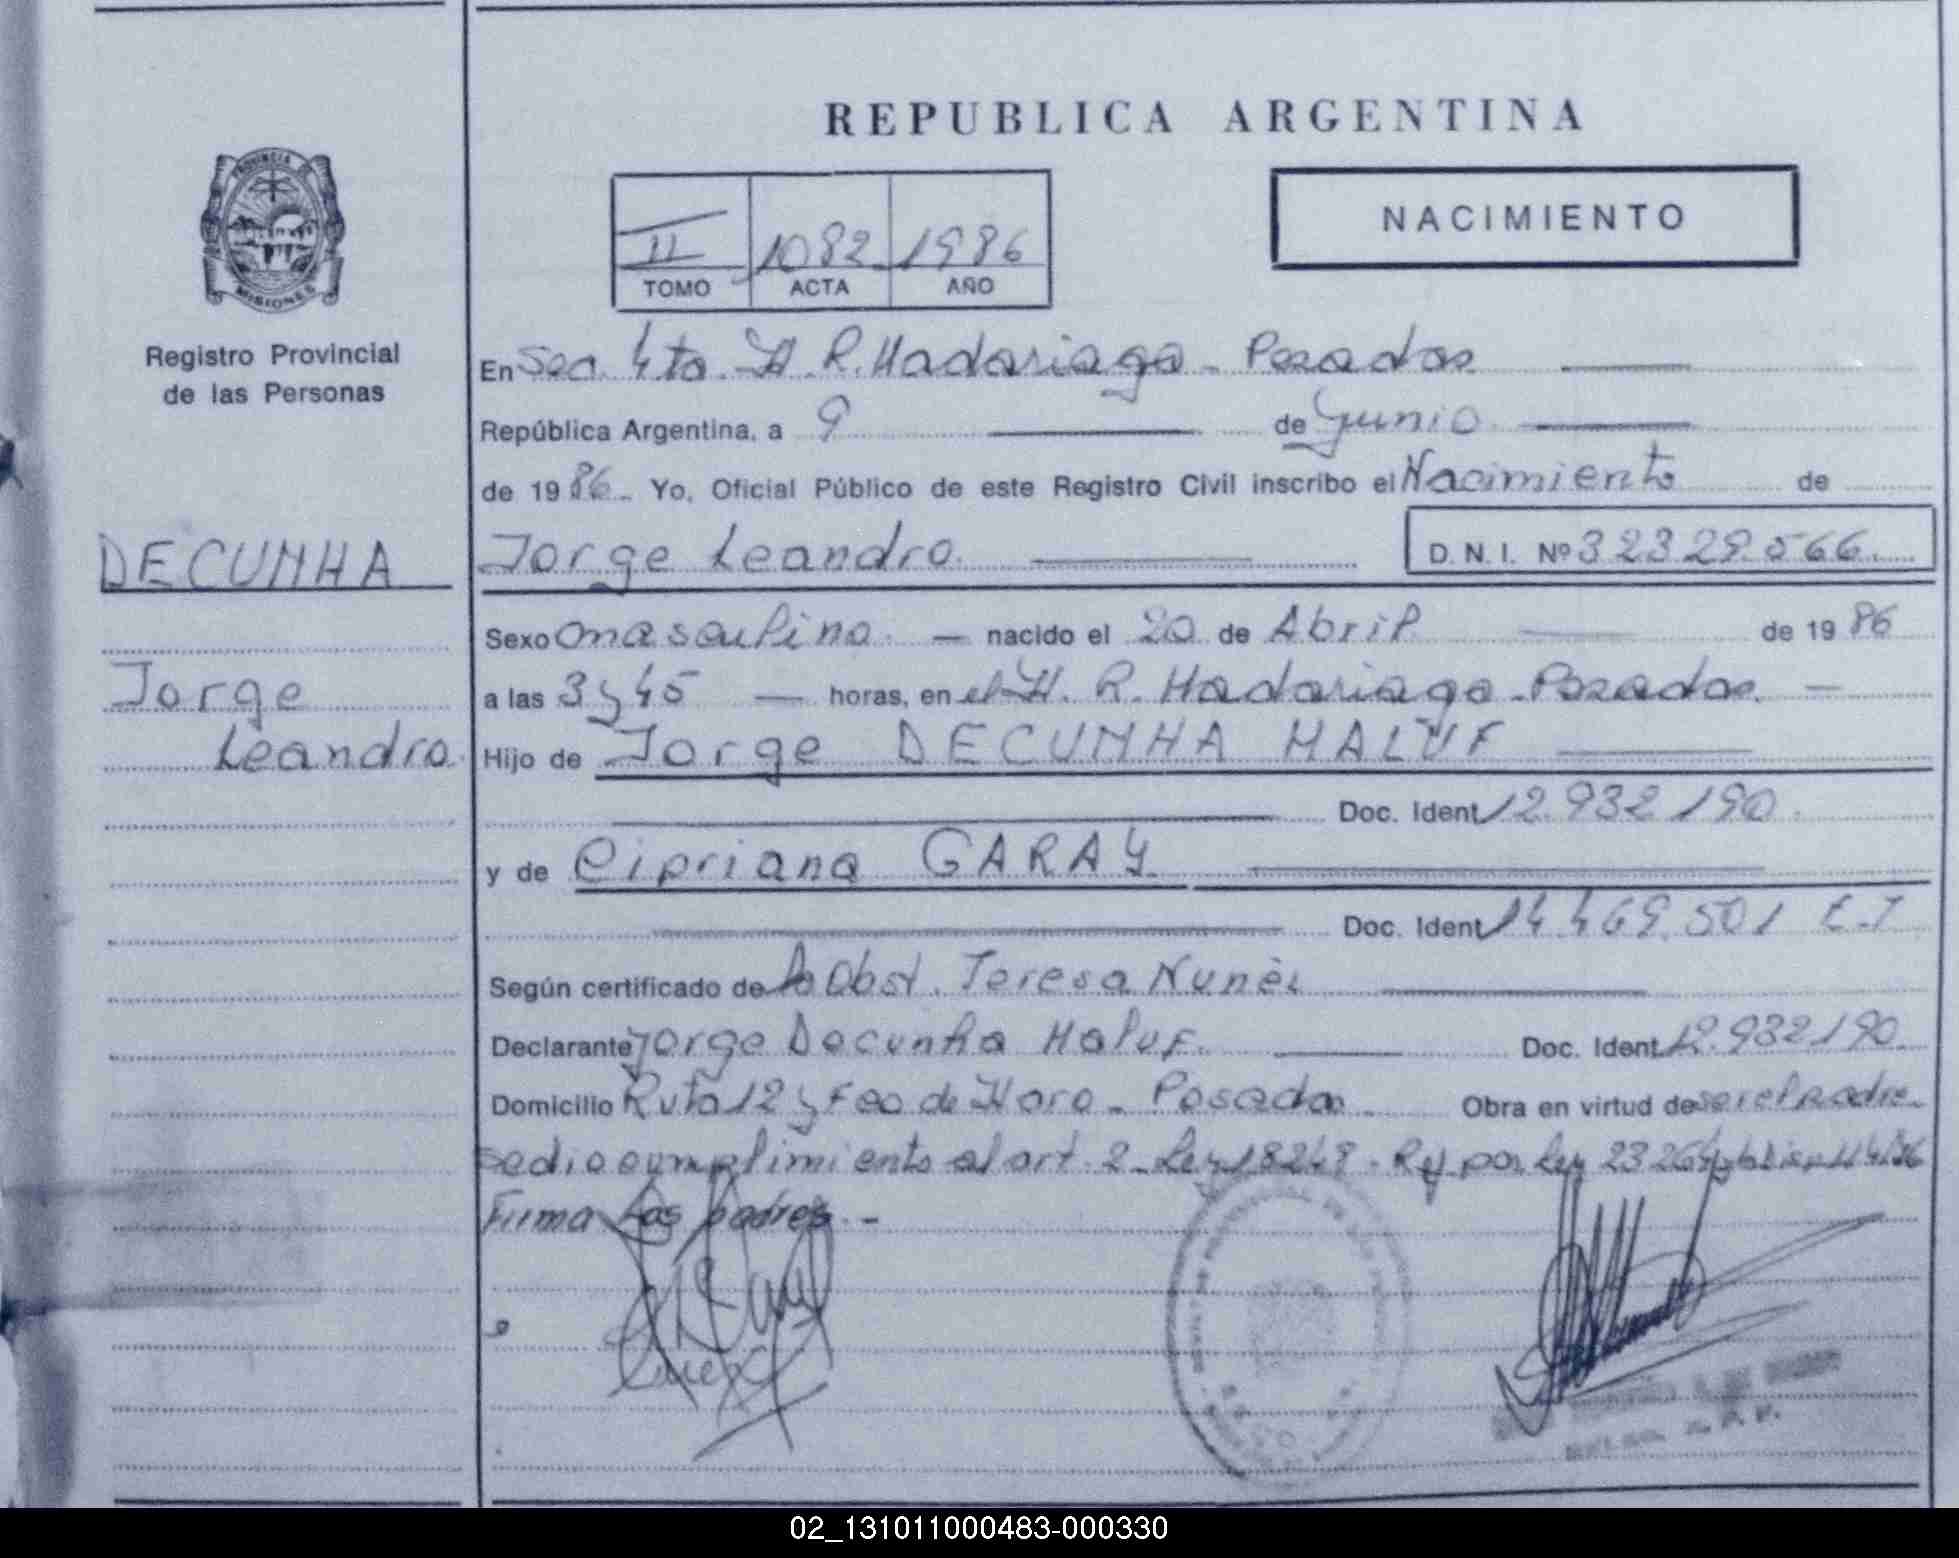 REPUBLICA ARGENTINA
PROVINCIA DE
MISIONES
Registro Provincial
de las Personas
II 1082 1986
TOMO ACTA AÑO
NACIMIENTO
En Sec. 4ta H. R. Madariaga - Posadas
República Argentina, a 9 de Junio
de 1986 Yo, Oficial Público de este Registro Civil inscribo el Nacimiento de
DECUNHA
Jorge
Leandro
Jorge Leandro D.N.I. Nº 32329.566
Sexo masculino - nacido el 20 de Abril de 1986
a las 3 y 45 horas, en el H. R. Madariaga - Posadas -
Hijo de Jorge DECUNHA MALUF
Doc. Ident 12.932190
y de Cipriana GARAY
Doc. Ident 14.469.501
Según certificado de la Obst. Teresa Nunez
Declarante Jorge Decunha Maluf. Doc. Ident. 12.932190
Domicilio Ruta 12 y Fco de Haro - Posadas Obra en virtud de ser el padre
se dio cumplimiento al art. 2 - Ley 18248 - por Ley 23264
Firma los padres. -
02_131011000483-000330